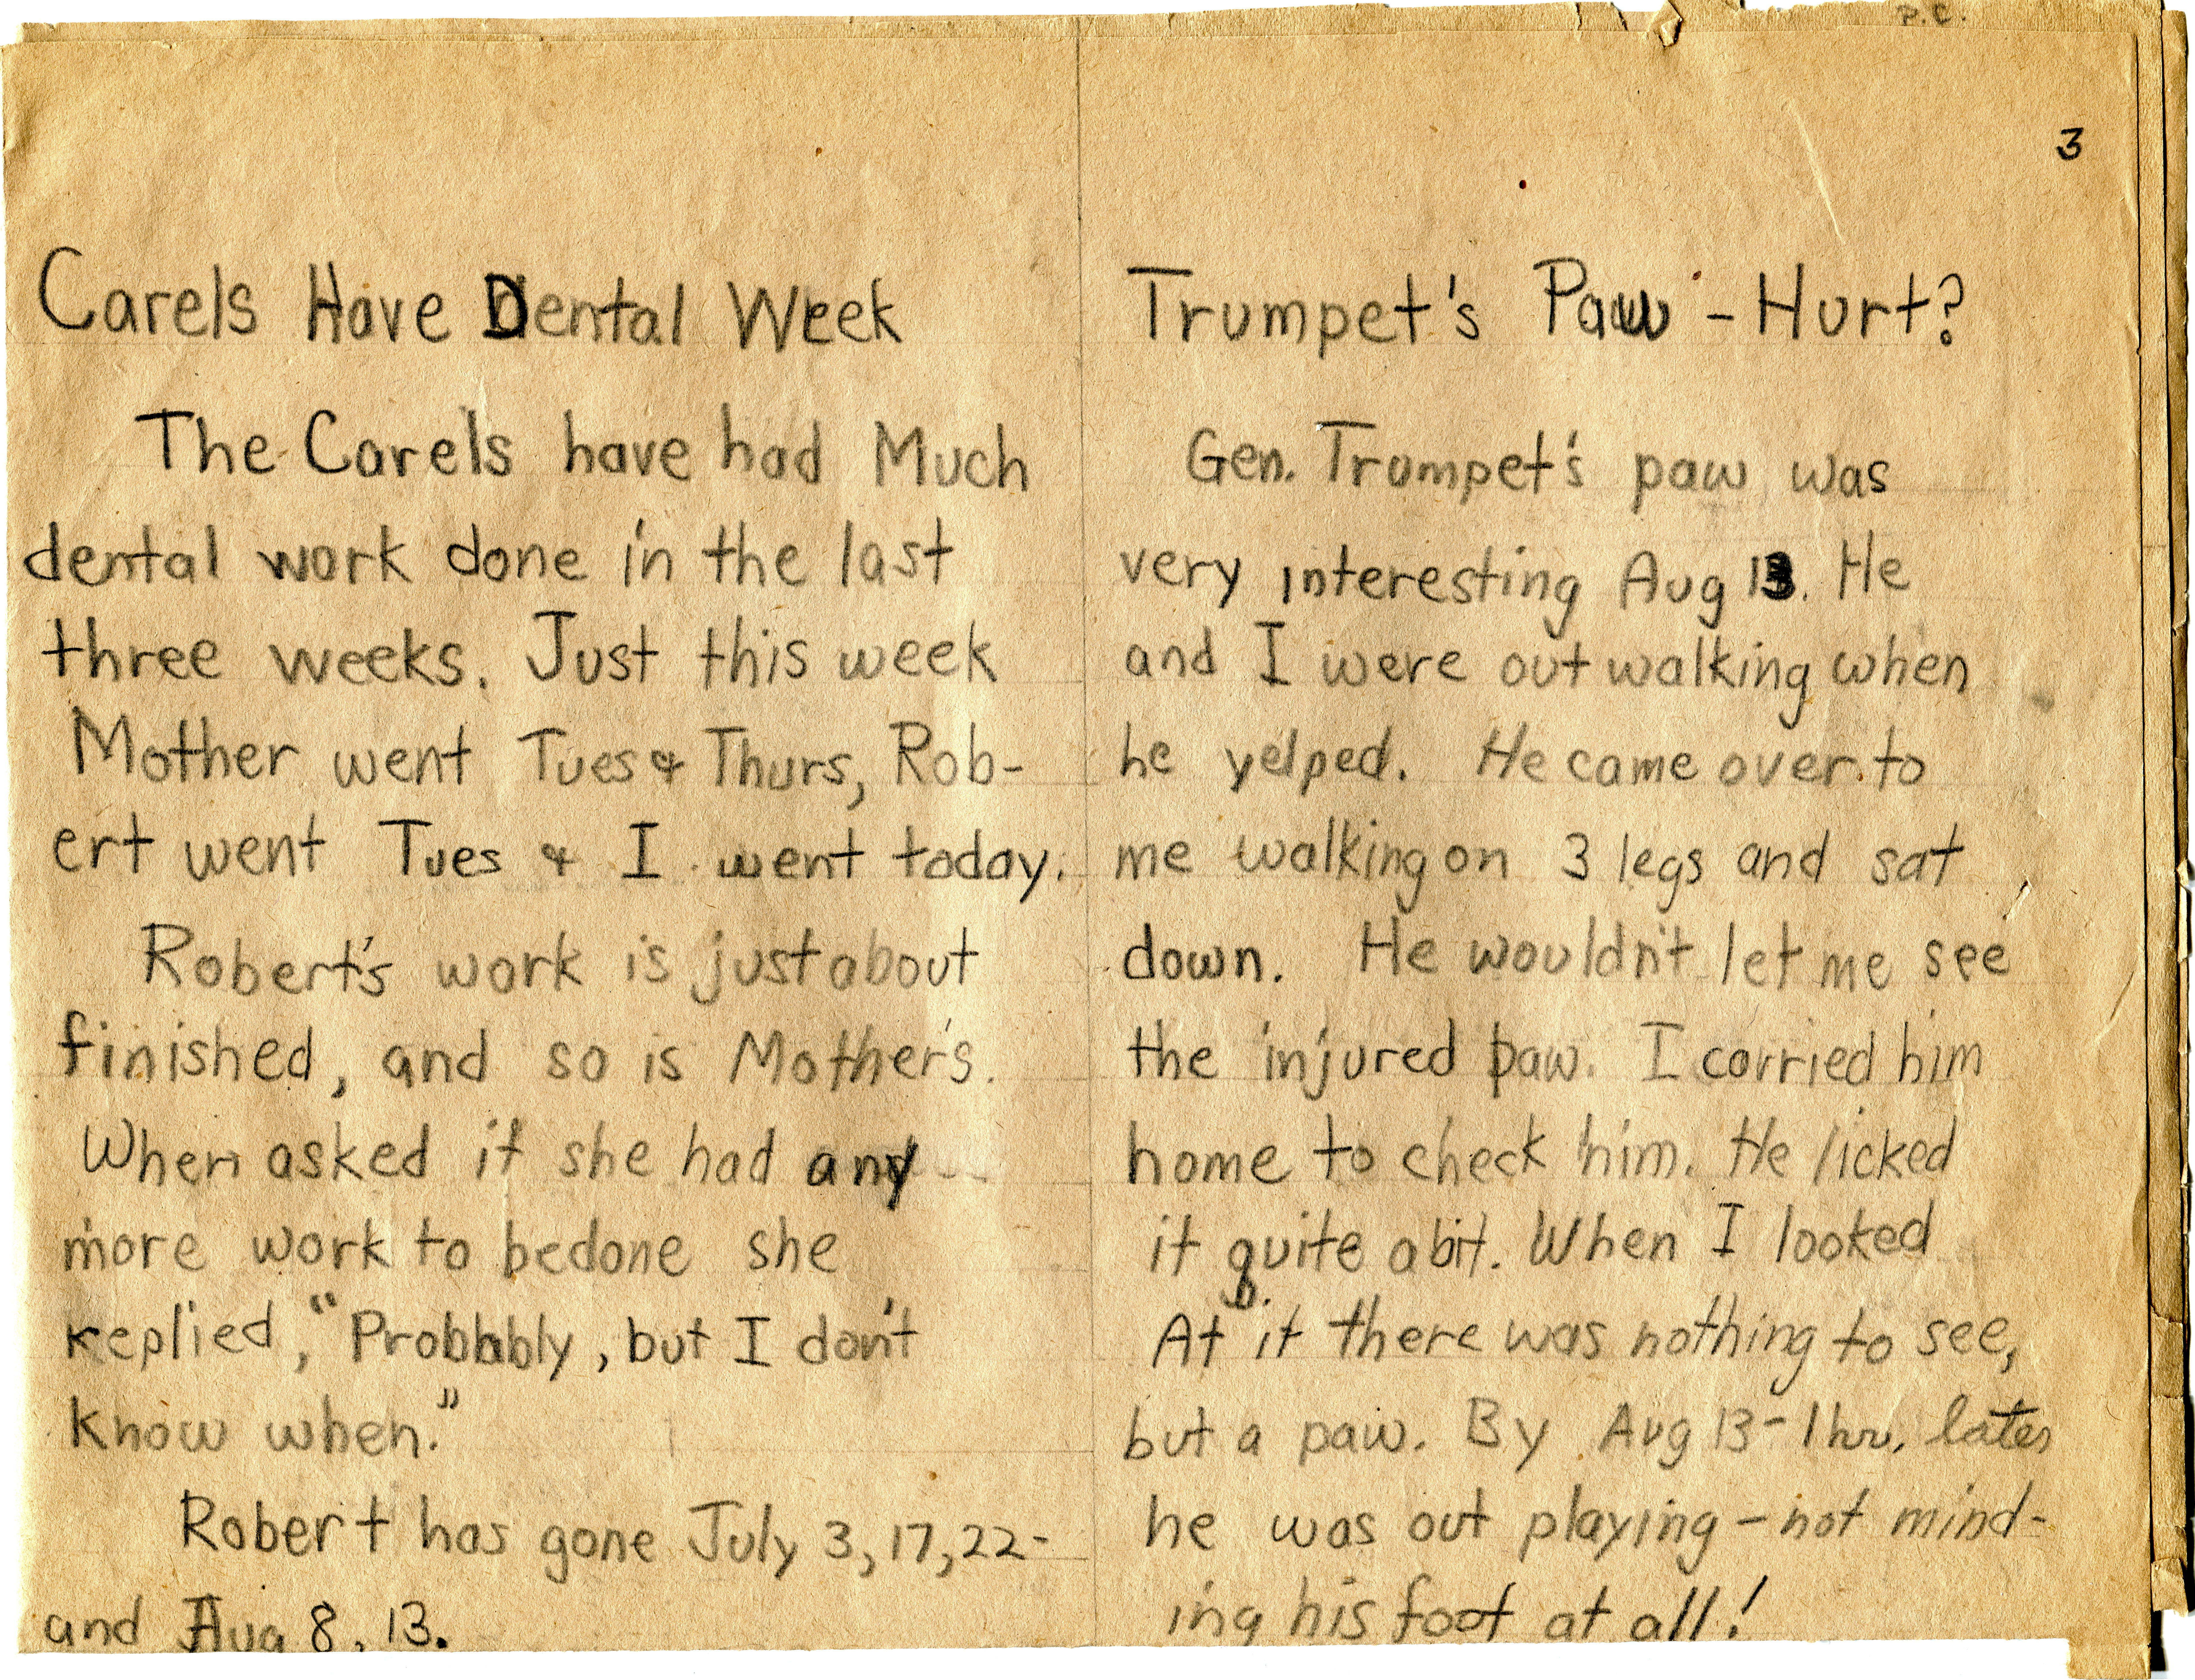 P.C.
3
Carels Have Dental Week
The Carels have had Much
dental work done in the last
three weeks. Just this week
Mother went Tues & Thurs, Rob-
ert went Tues & I went today.
Robert's work is just about
finished, and so is Mother's.
When asked if she had any
more work to bedone she
replied, "Probbably, but I don't
know when."
Robert has gone July 3, 17, 22-
and Aug 8, 13.
Trumpet's Paw - Hurt?
Gen. Trumpet's paw was
very interesting Aug 13. He
and I were out walking when
he yelped. He came over to
me walking on 3 legs and sat
down. He wouldn't let me see
the injured paw. I carried him
home to check him. He licked
it quite a bit. When I looked
At it there was nothing to see,
but a paw. By Aug 13 - 1 hr. later
he was out playing - not mind-
ing his foot at all!